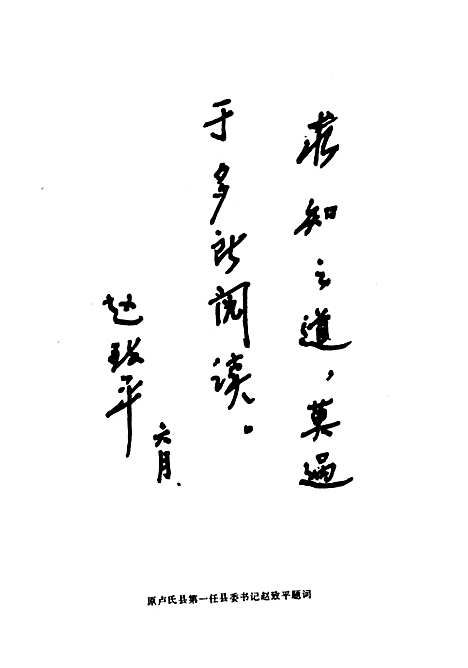 获知之道，莫过
于多所阅读。
赵致平
六月.
原卢氏县第一任县委书记赵致平题词